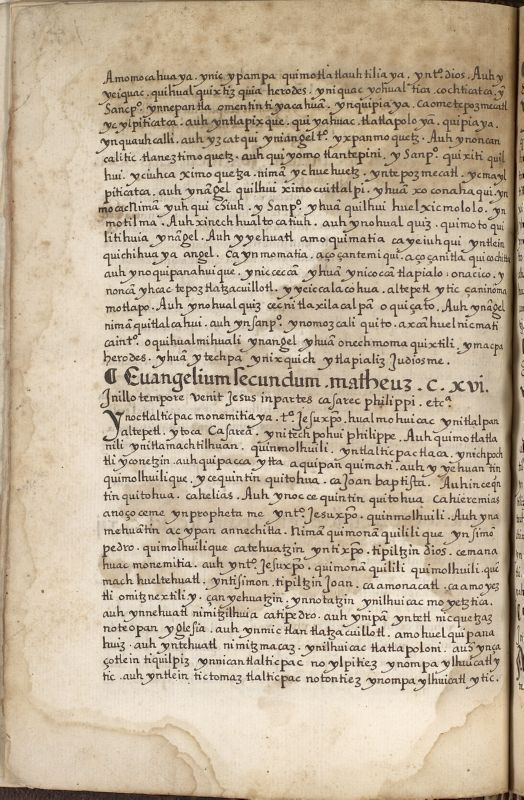 Amomocahuaya. ynic ypampa quimotlatlauhtiliaya. ynto. dios. Auh y
yeiquac. quihualquixtiz quia herodes. yniquac yohualtica. cochticatca. y
Sancpo. ynnepantla omentin tiyacahuā. ynquipia ya. ca ome tepozmecatl
yc ylpiticatca. auh yntlapixque. qui yahuac. tlatlapolo yā. quipiaya.
ynquauhcalli. auh yzcatqui yniangelto. yxpanmoquetz. Auh ynoncan
calitic. tlaneztimoquetz. auh quiyomotlantepini. y Sanpo. quixiti quil
hui. yciuhca ximoquetza. nimā ychuehuetz. yntepozmecatl. ycmayl
piticatca. auh ynāgel quilhui ximocuitlalpi. yhuā xoconaha qui. yn
mocac Nimā yuh qui chiuh. y Sanpo. yhuā quilhui huelxicmololo. yn
motilma. Auh xinechhualtocatiuh. auh ynohualquiz. quimotoqui
litihuia ynāgel. Auh yyehuatl amo quimatia ca yeiuhqui yntlein
quichihuaya angel. Ca yn momatia. aço çan temiqui. aço çan itla quicochitta
auh ynoquipanahuique. ynicceccā yhuā ynicoccā tlapialo. onacico. y
noncā yhcac tepoztlatzacuillotl. yyeiccalacohua. altepetl ytic çaninoma
motlapo. Auh ynohualquiz cecnitlaxilacalpā oquiçato. Auh ynāgel
nimā quitlalcahui. auh ynsanpo. ynomozcali quito. axcā huelnicmati
cainto. oquihualmihuali ynangel yhuā onechmomaquixtili. ymacpa
herodes. yhuā ytechpa ynixquich ytlapializ Judiosme.
¶ Euangelium secundum. matheuz. c. xvi.
In illo tempore venit Jesus in partes cæsarec philippi. etca.
Ynoctlalticpac monemitiaya. to. Jesuxpo. hualmohuicac ynitlalpan
yaltepetl. ytoca Casareā. ynitechpohui philippe. Auh quimotlatla
nili ynitlamachtilhuan. quinmolhuili. yntlalticpactlaca. ynichpoch
tli yconetzin. auh quipacca ytta aquipan quimati. auh y yehuantin
quimolhuilique. ycequintin quitohua. ca Joan baptista. Auh inceqn
tin quitohua. cahelias. Auh ynoccequintin quitohua cahieremias
anoço ceme ynpropheta me ynto. Jesuxpo. quinmolhuili. Auh yna
mehuātin ac ypan annechitta. Nimā quimonā quilili que ynsimō
pedro. quimolhuilique catehuatzin yntixpo. tipiltzin dios. cemana
huac monemitia. auh ynto Jesuxpo. quimonā quilili quimolhuili. que
mach hueltehuatl. yntisimon. tipiltzin Joan. ca amonacatl. ca amoyez
tli omitznextiliy. çan yehuatzin. ynnotatzin ynilhuicac moyetztica.
auh ynnehuatl nimitzilhuia catipedro. auh ynipā yntetl nicquetzaz
noteopan yglesia. auh ynmictlan tlatzacuillotl. amo huel quipana
huiz. auh yntehuatl nimitzmacaz. ynilhuicac tlatlapoloni. auh ynça
çotlein tiquilpiz ynnican tlalticpac no ylpitiez ynompa ylhuicatl y
tic. auh yntlein tictomaz tlalticpac notontiez ynompa ylhuicatl ytic.